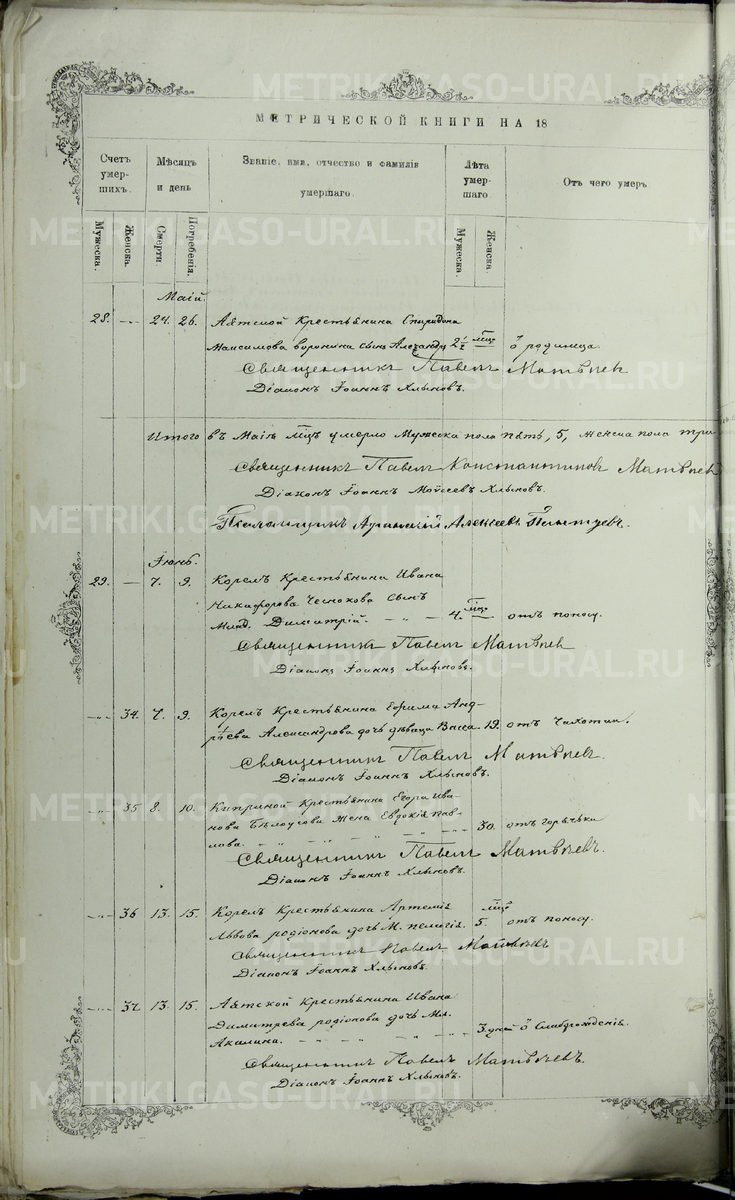 МЕТРИЧЕСКОЙ КНИГИ НА 18
Счетъ умер-шихъ.
Мѣсяцъ и день
Званіе, имя, отчество и фамилія умершаго.
Лѣта умер-шаго.
Отъ чего умеръ
Мужеска.
Женска.
Смерти.
Погребенія.
Мужеска.
Женска.
Маій.
28. — 24. 26. Аятской Крестьянина Спиридона
Максимова Воронина сынъ Александръ 2½ мцъ ѿ родимца.
Священникъ Павелъ Матвѣевъ
Діаконъ Іоаннъ Хлыновъ.
Итого въ Маіѣ мцѣ умерло Мужеска пола пять, 5, женска пола три
Священникъ Павелъ Константиновъ Матвѣевъ
Діаконъ Іоаннъ Моѵсеевъ Хлыновъ.
Псаломщикъ Алексѣевъ
Іюнь.
29. — 7. 9. Корелъ Крестьянина Ивана
Никифорова Чеснокова сынъ
Млад. Димитрій. — 4. мцъ — отъ поносу.
Священникъ Павелъ Матвѣевъ
Діаконъ Іоаннъ Хлыновъ.
34. 7. 9. Корелъ Крестьянина Ефима Анд-
рѣева Александрова дочь дѣвица Васса 19. отъ Чахотки.
Священникъ Павелъ Матвѣевъ.
Діаконъ Іоаннъ Хлыновъ.
35 8. 10. Киприной Крестьянина Егора Ива-
нова Бѣлоусова жена Евдокія Пав-
лова. 30. отъ горячки
Священникъ Павелъ Матвѣевъ.
Діаконъ Іоаннъ Хлыновъ.
36 13. 15. Корелъ Крестьянина Артемія
Львова Родіонова дочь М. Пелагія. 5. мцъ отъ поносу.
Священникъ Павелъ Матвѣевъ
Діаконъ Іоаннъ Хлыновъ.
37. 13. 15. Аятской Крестьянина Ивана
Димитрева Родіонова дочь Мл.
Акилина. 3 дней ѿ Слаборожденія.
Священникъ Павелъ Матвѣевъ.
Діаконъ Іоаннъ Хлыновъ.
METRIKI.GASO-URAL.RU